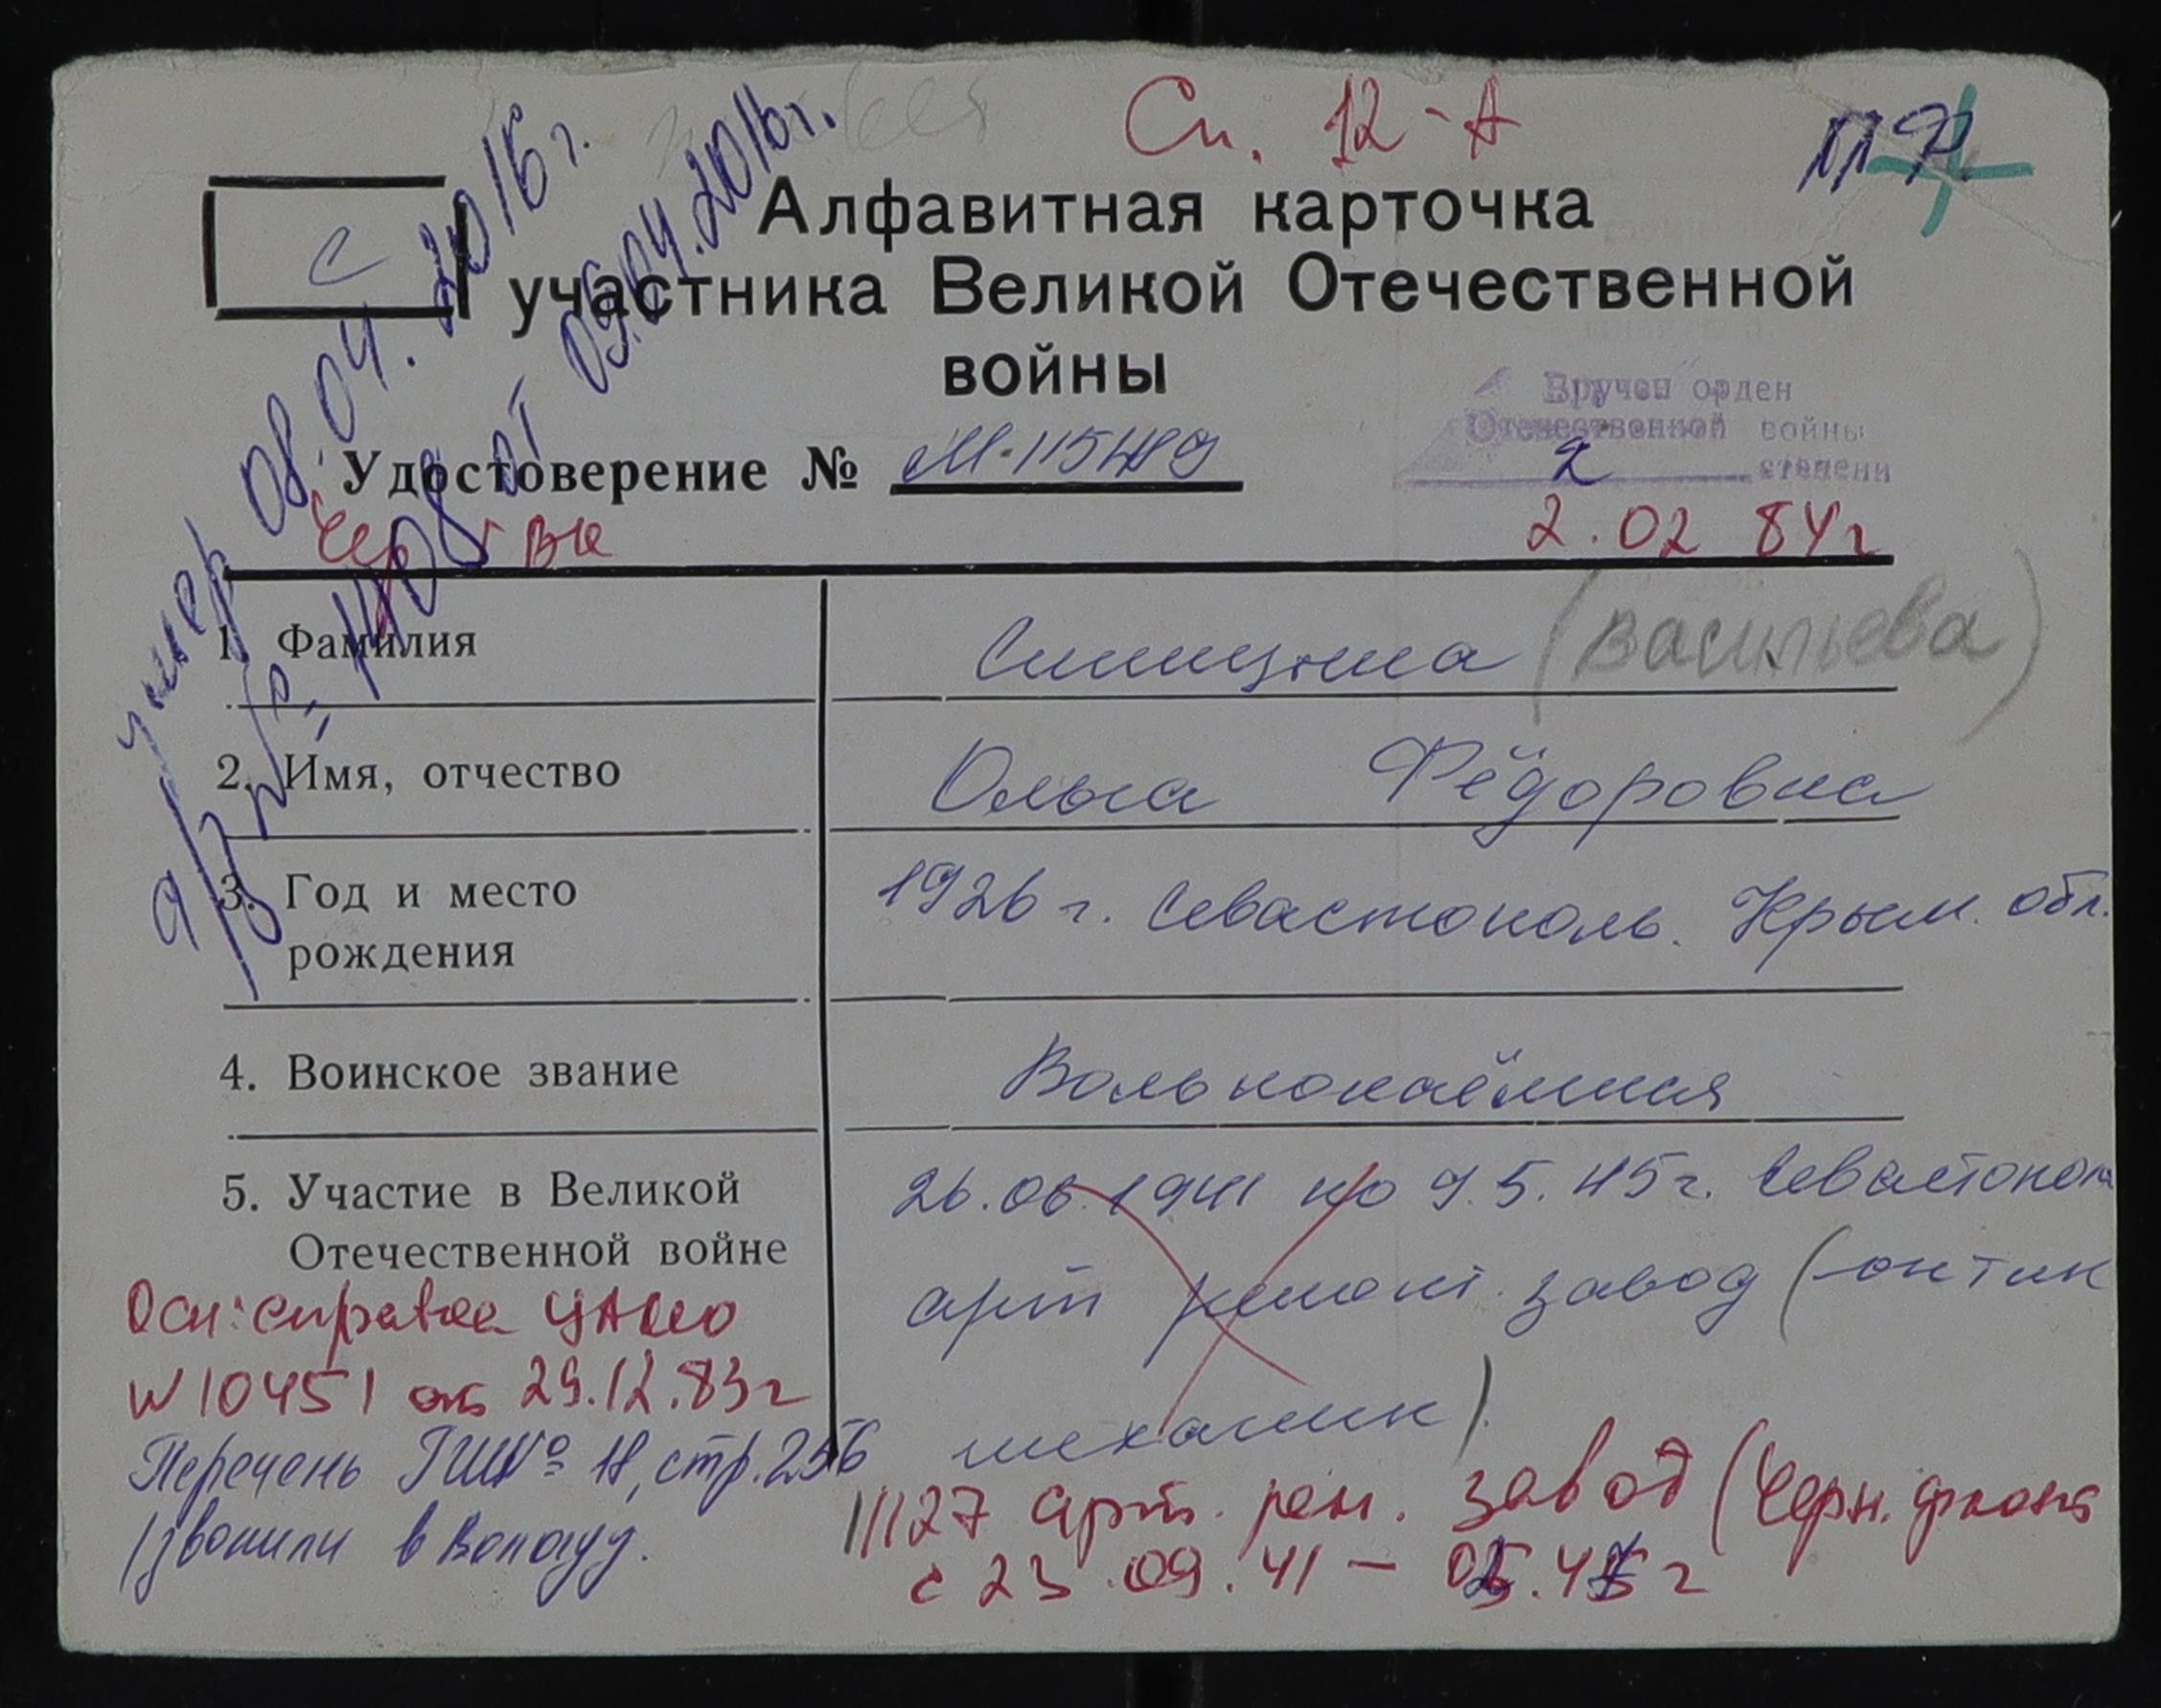 Сп. 12-А
ПР
С
Алфавитная карточка
участника Великой Отечественной
войны
Вручен орден
Отечественной войны
2 степени
2.02 84г
Удостоверение №
умер 08.04.2016г.
от 09.04.2016г.
1. Фамилия
Синицына (Васильева)
2. Имя, отчество
Ольга Фёдоровна
3. Год и место
рождения
1926 г. Севастополь. Крым. обл.
4. Воинское звание
Вольнонаёмная
5. Участие в Великой
Отечественной войне
26.06.1941 по 9.5.45г. Севастополь
арт ремонт. завод (-оптик
механик).
Осн: справка ЦАМО
№10451 от 29.12.83г
Перечень ГШ№ 18, стр. 256
звонили в Вологду.
1127 арт. рем. завод (Черн. флота
с 23.09.41 –